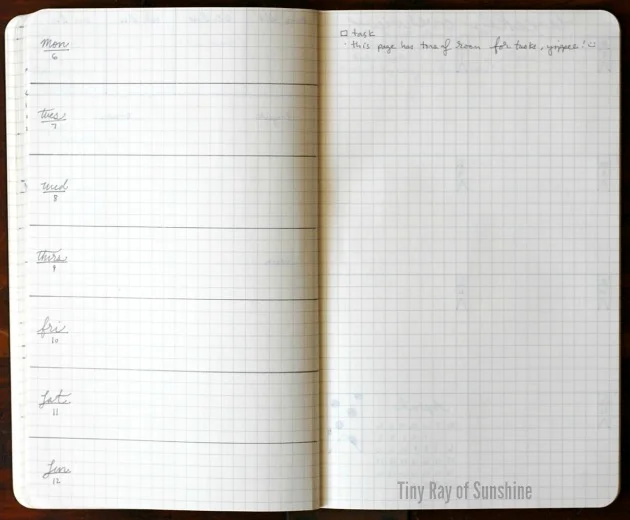 mon
6
tues
7
wed
8
thurs
9
fri
10
sat
11
sun
12
□ task
· this page has tons of room for tasks, yippee! :)
Tiny Ray of Sunshine